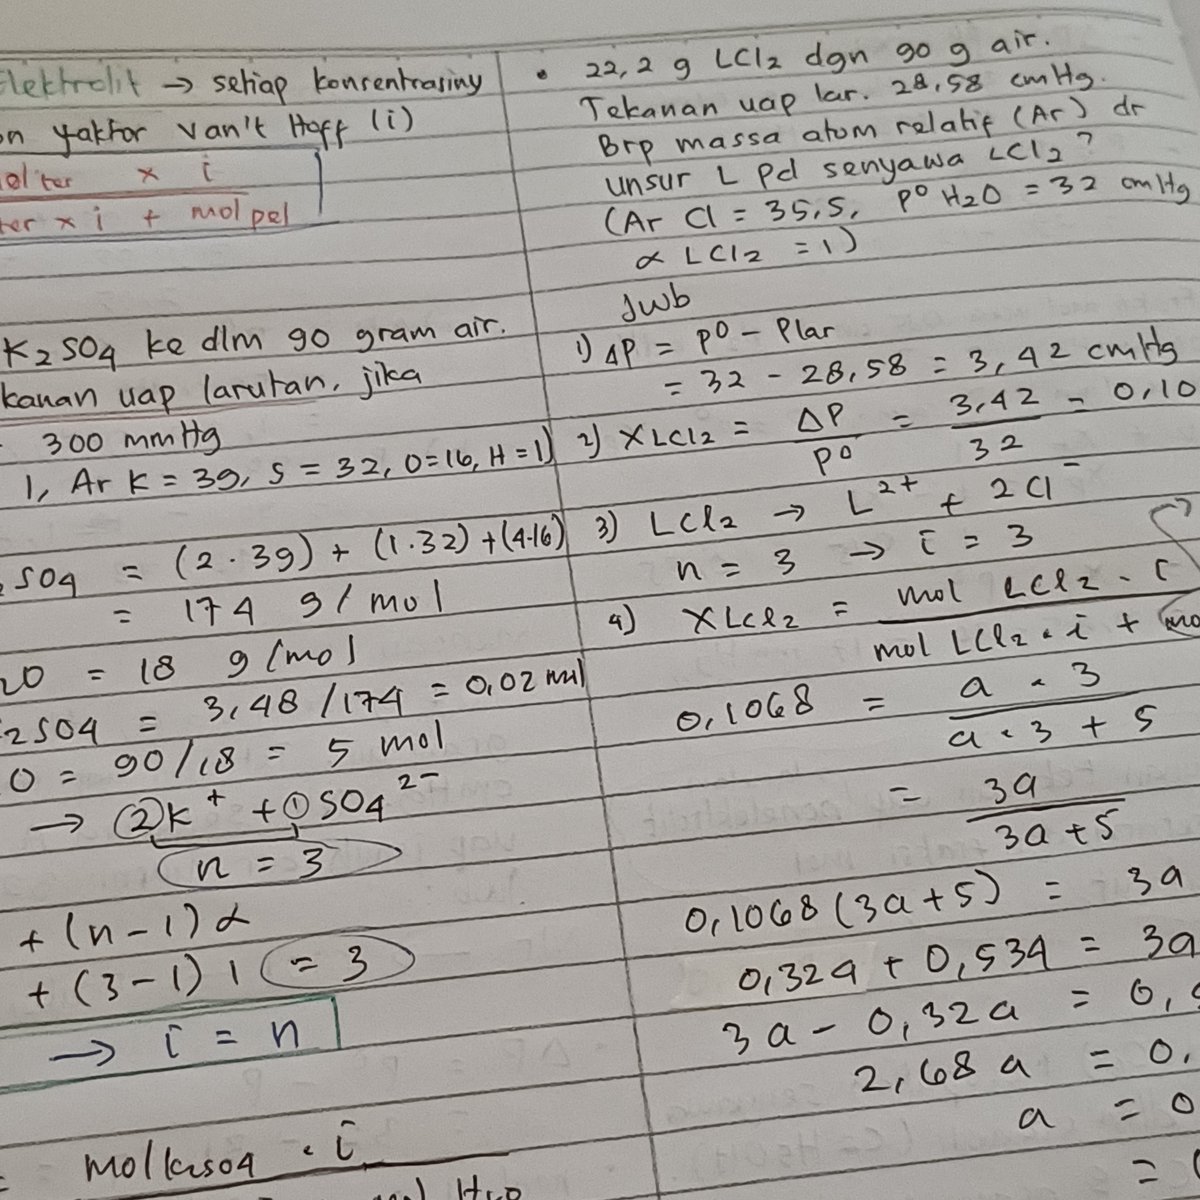 Elektrolit → setiap konsentrasiny
on faktor van't Hoff (i)
x i
ter x i + mol pel
K2SO4 ke dlm 90 gram air.
kanan uap larutan, jika
300 mmHg
1, Ar K = 39, S = 32, O=16, H=1)
SO4 = (2.39) + (1.32) + (4.16)
= 174 g/mol
2O = 18 g/mol
2SO4 = 3,48/174 = 0,02 mol
O = 90/18 = 5 mol
→ 2K+ + 1SO4 2-
n = 3
+ (n-1) α
+ (3-1) 1 = 3
→ i = n
= mol K2SO4 . i
• 22,2 g LCl2 dgn 90 g air.
Tekanan uap lar. 28,58 cmHg.
Brp massa atom relatif (Ar) dr
unsur L pd senyawa LCl2?
(Ar Cl = 35,5, P° H2O = 32 cmHg
α LCl2 = 1)
Jwb
1) ΔP = P° - Plar
= 32 - 28,58 = 3,42 cmHg
2) XLCl2 = ΔP / P° = 3,42 / 32 = 0,10
3) LCl2 → L2+ + 2Cl-
n = 3 → i = 3
4) XLCl2 = mol LCl2 . i
mol LCl2 . i + mo
0,1068 = a . 3
a . 3 + 5
= 3a
3a + 5
0,1068 (3a+5) = 3a
0,32a + 0,534 = 3a
3a - 0,32a = 0,5
2,68 a = 0,
a = 0
=